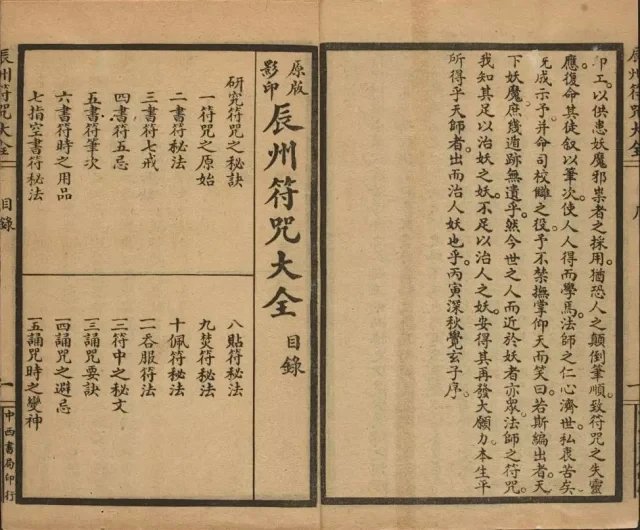 辰州符咒大全
印工。以供患妖魔邪祟者之採用。猶恐人之顛倒筆順。致符咒之失靈
應。復命其徒叙以筆次。使人人得而學。馬法師之仁心濟世。私衷苦矣。
既成示予。并命司校讎之役。予不禁撫掌仰天而笑曰。若斯編出者。天
下妖魔。庶幾遁跡無遺乎。然今世之人而近於妖者亦衆。法師之符咒。
我知其足以治妖之妖。不足以治人之妖。安得其再發大願力。本生平
所得乎天師者。出而治人妖也乎。丙寅深秋覺玄子序。
原版影印 辰州符咒大全 目錄
研究符咒之秘訣
一符咒之原始
二書符秘法
三書符七戒
四書符五忌
五書符筆次
六書符時之用品
七指空書符秘法
八貼符秘法
九焚符秘法
十佩符秘法
一一吞服符法
一二符中之秘文
一三誦咒要訣
一四誦咒之避忌
一五誦咒時之變神
辰州符咒大全
目錄
一
中西書局印行